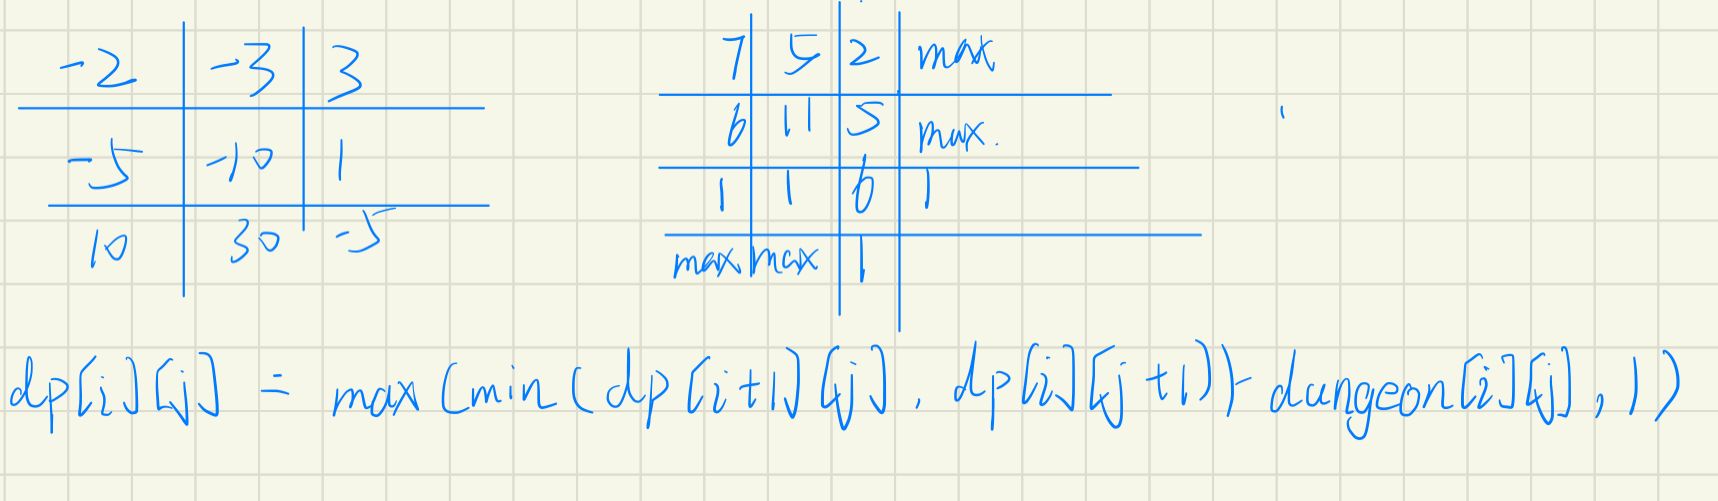 -2 -3 3
-5 -10 1
10 30 -5
7 5 2 max
6 11 5 max.
1 1 6 1
max max 1
dp[i][j] = max(min(dp[i+1][j], dp[i][j+1])-dungeon[i][j], 1)